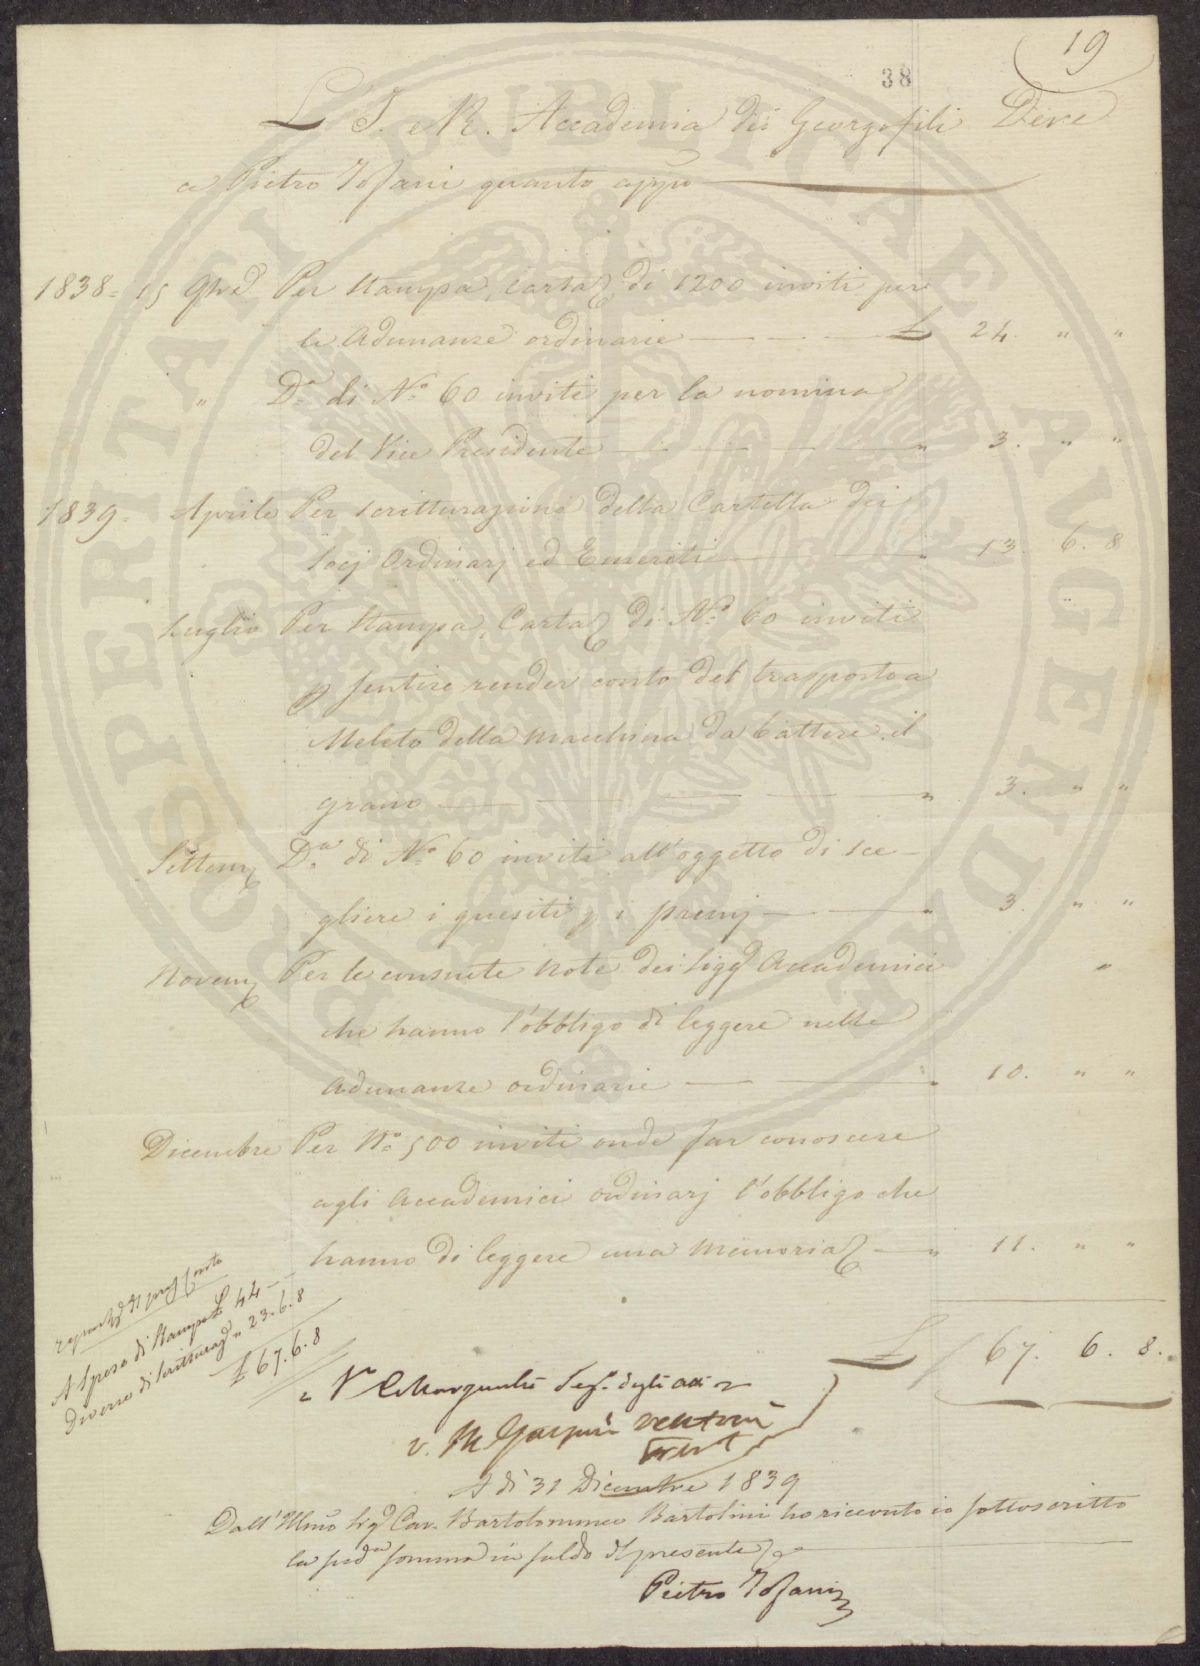 19
38
L'I. e R. Accademia dei Georgofili Deve
a Pietro Tofani quanto app.o
1838 = 15 9bre Per Stampa, Carta di 1200 inviti per
le Adunanze ordinarie £ 24. " "
" D.a di N.o 60 inviti per la nomina
del Vice Presidente " 3. " "
1839 = Aprile Per scritturazione della Cartella dei
Socj Ordinarj ed Emeriti " 13. 6. 8
Luglio Per Stampa, Carta di N.o 60 inviti
p sentire render conto del trasporto a
Meleto della Macchina da battere il
grano " 3. " "
Settem D.a di N.o 60 inviti all'oggetto di sce
gliere i quesiti p i premj " 3. " "
Novem Per le consuete Note dei Sigg Accademici
che hanno l'obbligo di leggere nelle
Adunanze ordinarie " 10. " "
Dicembre Per N.o 500 inviti onde far conoscere
agli Accademici ordinarj l'obbligo che
hanno di leggere una Memoria " 11. " "
£ 67. 6. 8.
conto
A Spese di Stampe £ 44
Diverse di Scritturaz " 23. 6. 8
£ 67. 6. 8
Seg. degli atti
v.
A dì 31 Dicembre 1839
Dall'Illmo Sig Cav. Bartolommeo Bartolini ho ricevuto io sottoscritto
la sud.a somma in saldo del presente
Pietro Tofani
PROSPERITATI PVBLICAE AVGENDAE